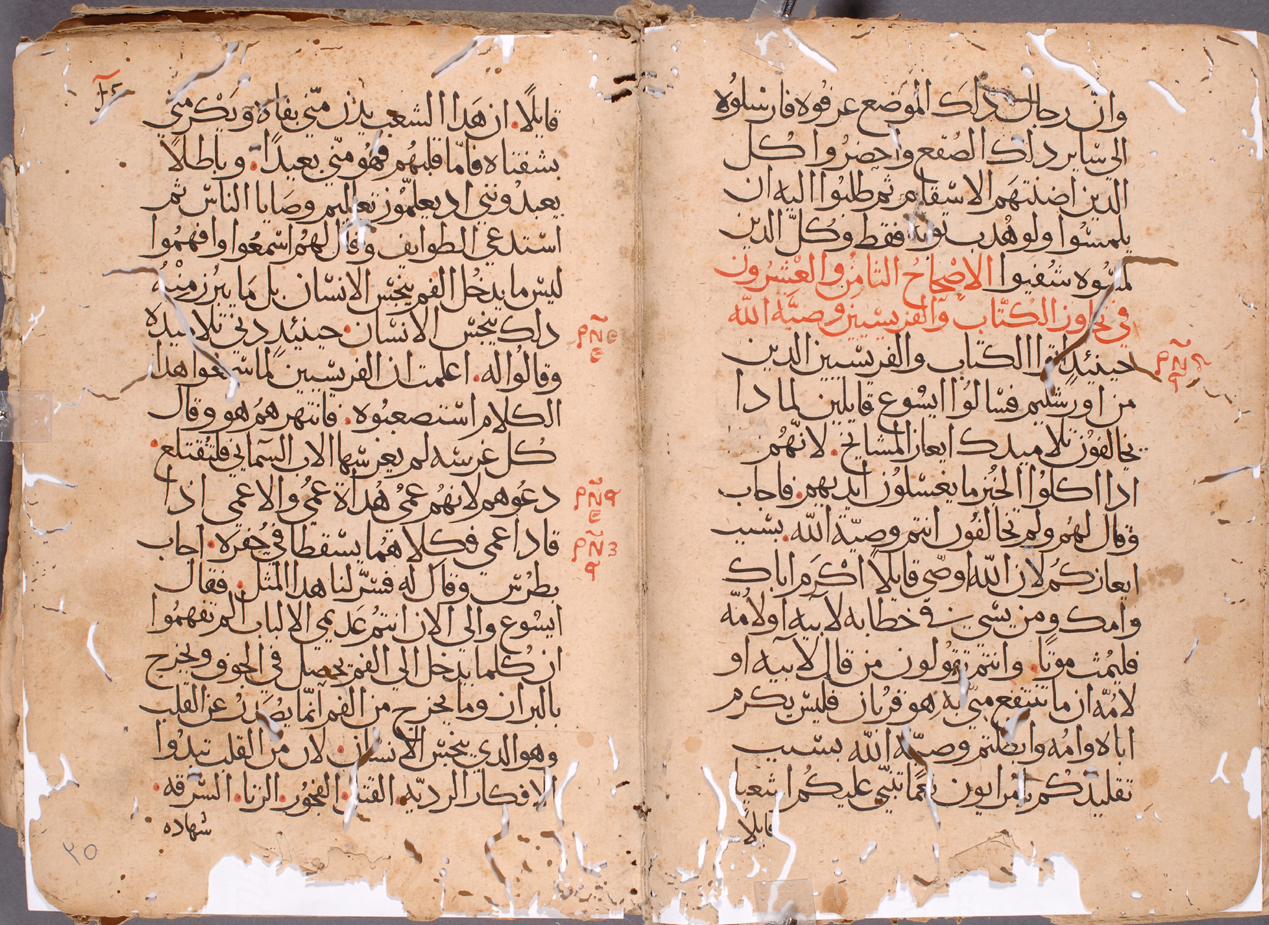 وان رجال دلك الموضع عرفوه فارسلوه
الى ساير دلك الصقع واحضروا كل
الدين اضنتهم الاسقام ثم طلبوا اليه ان
يلمسوا ولو هدب ثوبه فقط وكل الدين
لمسوه شفيوا الاصحاح الثامن والعشرون
في تجاوز الكتاب والفريسيين وصية الله
حينئد اتى الكتاب والفريسيين الدين
من اورشليم فسالوا ايسوع قايلين لما دا
يخالفون تلاميدك ايعاز المشايخ. لانهم
ادا اكلوا الخبز ما يغسلون ايديهم. فاجاب
وقال لهم ولم تخالفون انتم وصية الله. بسبب
ايعازكم لان الله اوصى قايلا اكرم اباك
وامك ومن يسي في خطابه لابيه او لامه
فليمت موتا. وانتم تقولون من قال لابيه او
لامه ان ما تنتفع مني به هو قربان فليس يكرم
اباه وامه وابطلتم وصية الله بسبب
تقليدكم يا مرايون نعما تنبي عليكم اشعيا
قايلا
قايلا. ان هدا الشعب يدن مني بفاه ويكرمني
بشفتاه فاما قلبهم فهو مني بعيدا. وباطلا
يعبدونني اد يعلمون تعاليم وصايا الناس ثم
استدعي الطوايف وقال لهم اسمعوا وافهموا
ليس ما يدخل الفم ينجس الانسان بل ما يبرز منه
داك ينجس الانسان. حينيد دني تلاميده
وقالوا له. اعلمت ان الفريسيين لما سمعوا هدا
الكلام استصعبوه. فانتهرهم هو وقال
كل غرسه لم يغرسها الاب السمايي فلتقتلع.
دعوهم لانهم عمي هداة عمي والاعمى ادا
قاد اعمى فكلاهما يسقطا في حفره. اجاب
بطرس وقال له فسر لنا هدا المثل. فقال
ايسوع والى الان انتم عدمي الالباب الم تفهموا
ان كلما يدخل الى الفم يحصل في الجوف ويخرج
بالبراز وما يخرج من الفم انما يصدر عن القلب
وهو الدي ينجس الانسان. لان من القلب تبدوا
الافكار الرديه. القتل. الفجور. الزنا. السرقه.
شهاده
٣٥